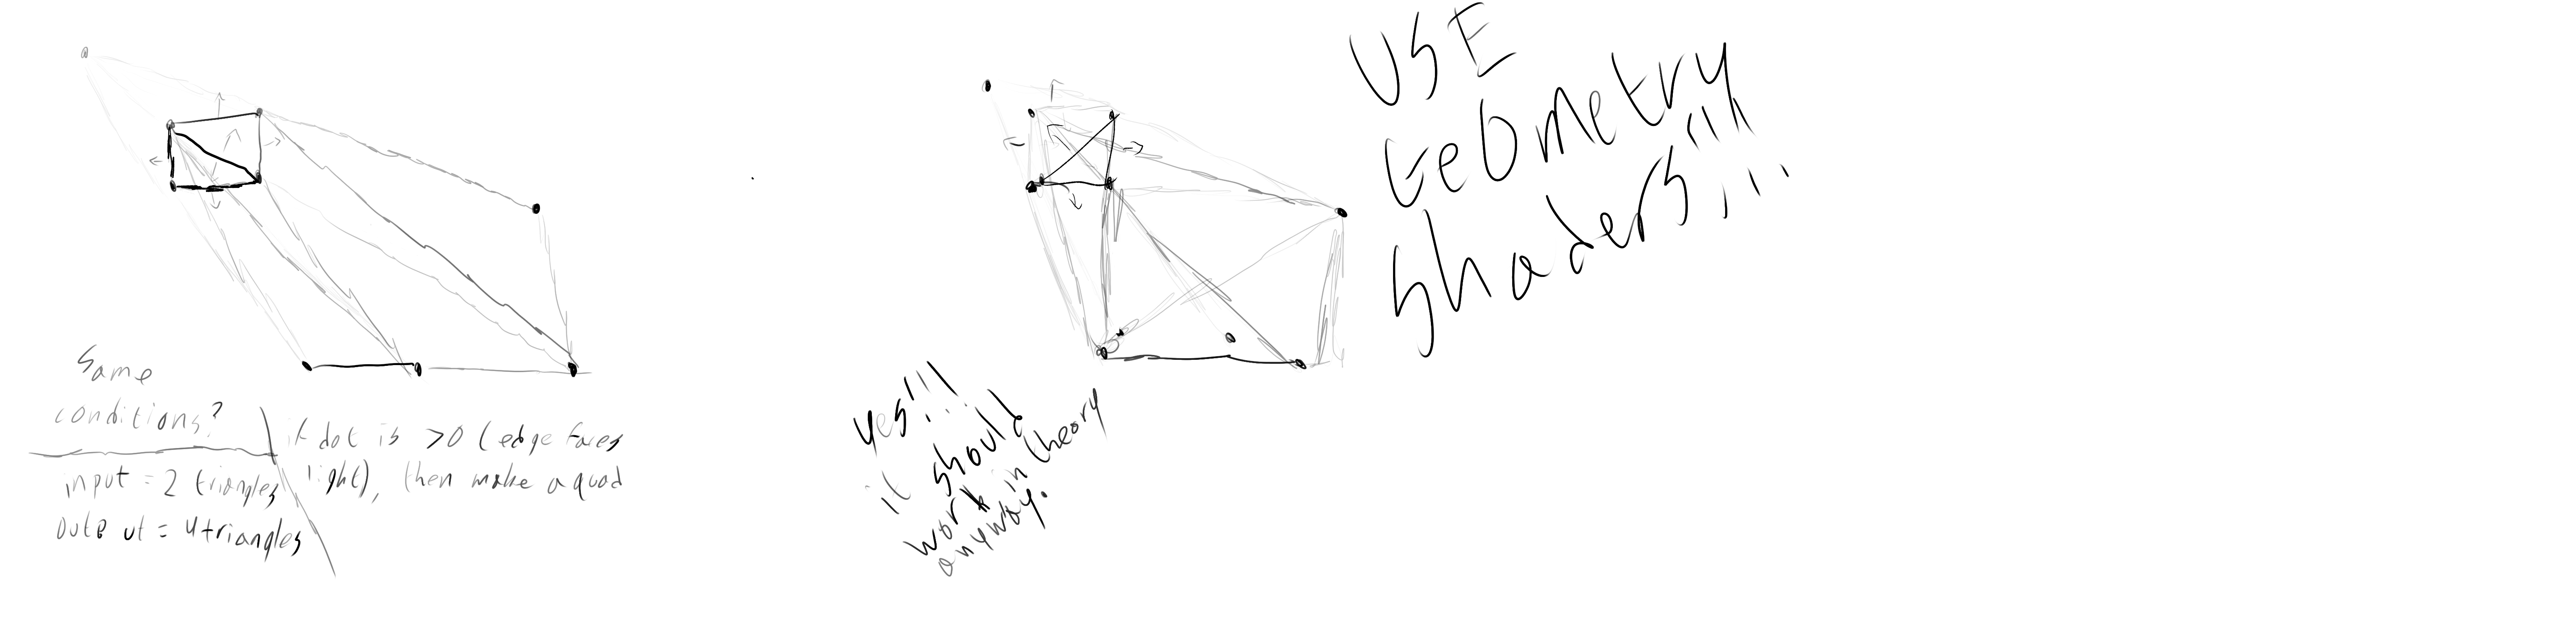 Same
conditions?
input = 2 triangles
output = 4 triangles
if dot is >0 (edge faces
light), then make a quad
yes!!!
it should
work in theory
anyway.
USE
Geometry
shaders!!!